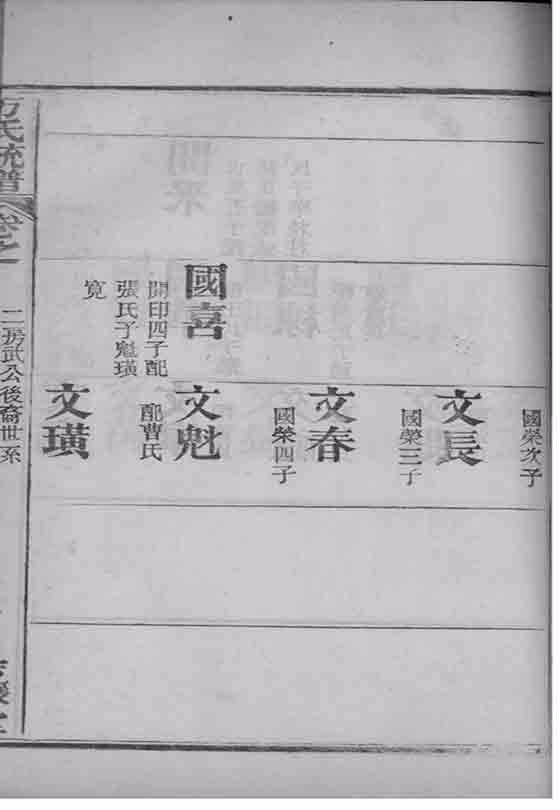 國榮次子
文長
國榮三子
文春
國榮四子
國喜
開印四子配
張氏子魁璜
寬
文魁
配曹氏
文璜
方氏統譜
卷之一
二房武公後裔世系